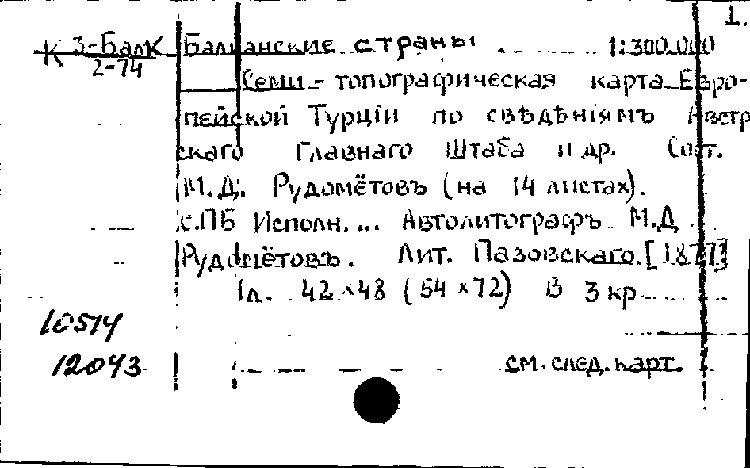 1.
К 3-Балк Балканские страны. 1:300.000
2-74
Семи-топографическая карта Евро-
пейской Турціи по свѣдѣніямъ Австр
скаго Главнаго Штаба и др. Сост.
М.Д. Рудомётовъ (на 14 листах).
С.ПБ Исполн.... Автолитографъ М.Д
Рудомётовъ. Лит. Пазовскаго. [1877]
1л. 42×48 (54×72) В 3 кр
10514
12043 см. след. карт.